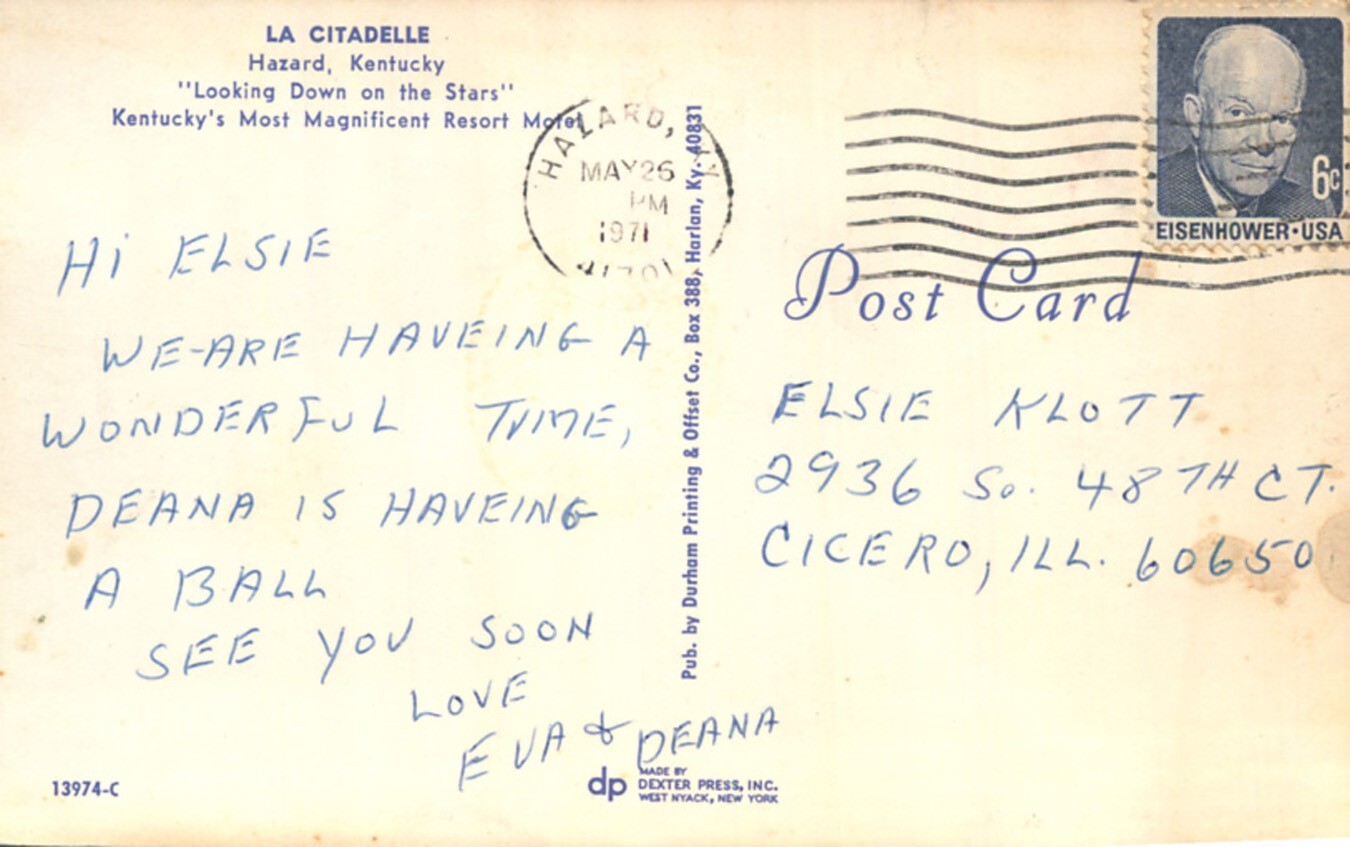 LA CITADELLE
Hazard, Kentucky
"Looking Down on the Stars"
Kentucky's Most Magnificent Resort Motel
HAZARD, KY
MAY 26
PM
1971
41701
6c
EISENHOWER·USA
Post Card
Hi ELSIE
WE-ARE HAVEING A
WONDERFUL TIME,
DEANA IS HAVEING
A BALL
SEE YOU SOON
LOVE
EVA & DEANA
Pub. by Durham Printing & Offset Co., Box 388, Harlan, Ky. 40831
ELSIE KLOTT
2936 So. 48TH CT.
CICERO, ILL. 60650
13974-C
dp
MADE BY
DEXTER PRESS, INC.
WEST NYACK, NEW YORK